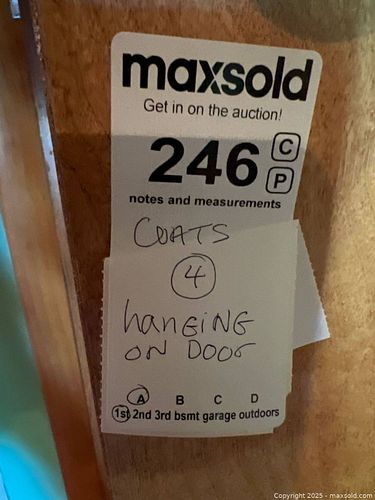 maxsold
Get in on the auction!
246 C
P
notes and measurements
COATS
4
hanging
ON DOOR
A B C D
1st 2nd 3rd bsmt garage outdoors
Copyright 2025 - maxsold.com